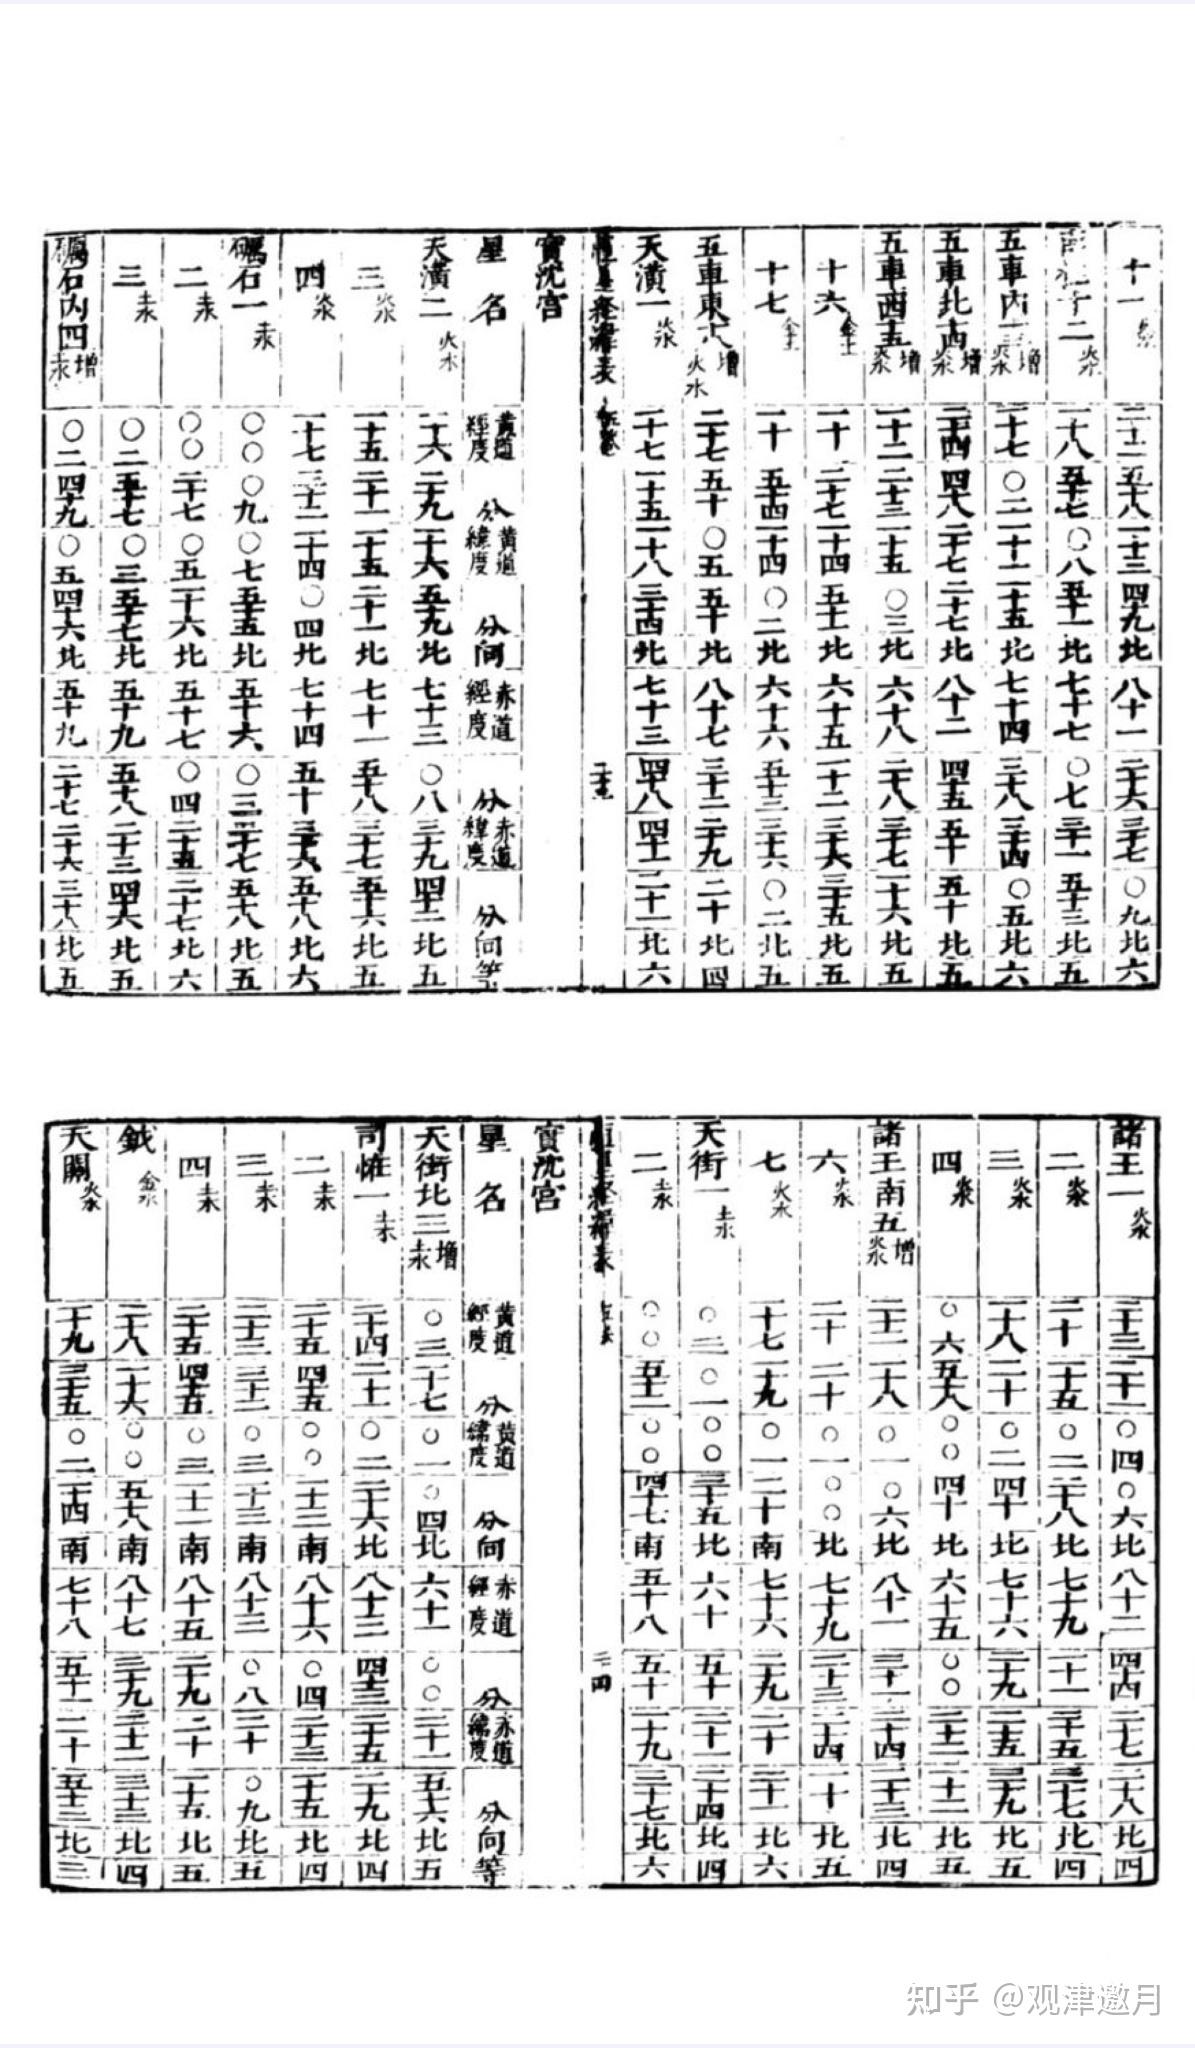 十一 二十二 五十八 一十三 四十九 北 八十一 二十六 三十七 〇九 北 六
二 火水 一十八 五十七 〇八 五十一 北 七十七 〇七 三十一 五十三 北 五
五車內十三 增 火水 一十七 〇二 一十二 一十五 北 七十四 三十八 三十四 〇五 北 六
五車北十四 增 火水 二十四 四十八 二十七 二十七 北 八十二 四十五 五十 五十 北 五
五車西十五 增 火水 一十二 二十三 一十五 〇三 北 六十八 二十八 三十七 一十六 北 五
十六 金土 一十 二十七 一十四 五十一 北 六十五 一十二 三十六 三十五 北 五
十七 金土 一十 五十四 一十四 〇二 北 六十六 五十三 三十六 〇二 北 五
五車東十八 增 火水 二十七 五十 〇五 五十 北 八十七 三十二 二十九 二十 北 四
天潢一 火水 一十七 一十五 一十八 三十四 北 七十三 四十八 四十一 二十一 北 六
恒星經緯表
實沈宮
星名 黃道經度 分 黃道緯度 分 向 赤道經度 分 赤道緯度 分 向 等
天潢二 火水 一十六 二十九 一十六 五十九 北 七十三 〇八 三十九 四十二 北 五
三 火水 一十五 二十一 一十五 二十一 北 七十一 五十八 三十七 五十六 北 五
四 火水 一十七 三十二 一十四 〇四 北 七十四 五十 三十六 五十八 北 六
礪石一 土水 〇〇 〇九 〇七 五十五 北 五十六 〇三 二十七 五十八 北 五
二 土水 〇〇 二十七 〇五 一十六 北 五十七 〇四 二十五 二十七 北 六
三 土水 〇二 五十七 〇三 五十七 北 五十九 五十八 二十三 四十六 北 五
礪石內四 增 土水 〇二 四十九 〇五 四十六 北 五十九 二十七 二十六 三十八 北 五
諸王一 火水 二十三 二十一 〇四 〇六 北 八十二 四十四 二十七 一十八 北 四
二 火水 二十 二十五 〇二 二十八 北 七十九 二十一 二十五 三十七 北 四
三 火水 一十八 二十 〇二 四十 北 七十六 二十九 二十五 三十九 北 五
四 火水 〇六 五十八 〇〇 四十 北 六十五 〇〇 二十二 一十二 北 五
諸王南五 增 火水 二十二 一十八 〇一 〇六 北 八十一 三十一 二十四 二十三 北 四
六 火水 二十 二十 〇一 〇〇 北 七十九 二十三 二十四 一十 北 五
七 火水 一十七 一十九 〇一 二十 南 七十六 二十九 二十 三十一 北 六
天街一 土水 〇三 〇一 〇〇 三十五 北 六十 五十 二十一 二十四 北 四
二 土水 〇〇 五十二 〇〇 四十七 南 五十八 五十 一十九 三十七 北 六
恒星經緯表
二十四
實沈宮
星名 黃道經度 分 黃道緯度 分 向 赤道經度 分 赤道緯度 分 向 等
天街北三 增 土水 〇三 一十七 〇一 〇四 北 六十一 〇〇 二十一 五十六 北 五
司怪一 土水 二十四 二十一 〇二 二十六 北 八十三 四十三 二十五 二十九 北 四
二 土水 二十五 四十五 〇〇 一十三 南 八十六 〇四 二十三 一十五 北 四
三 土水 二十三 三十二 〇三 一十三 南 八十三 〇八 二十 〇九 北 五
四 土水 二十五 四十五 〇三 一十一 南 八十五 二十九 二十 一十五 北 五
鉞 金水 二十八 一十六 〇〇 五十八 南 八十七 三十九 二十二 三十三 北 四
天關 火水 一十九 三十五 〇二 一十四 南 七十八 五十二 二十 五十三 北 三
知乎 @观津邀月